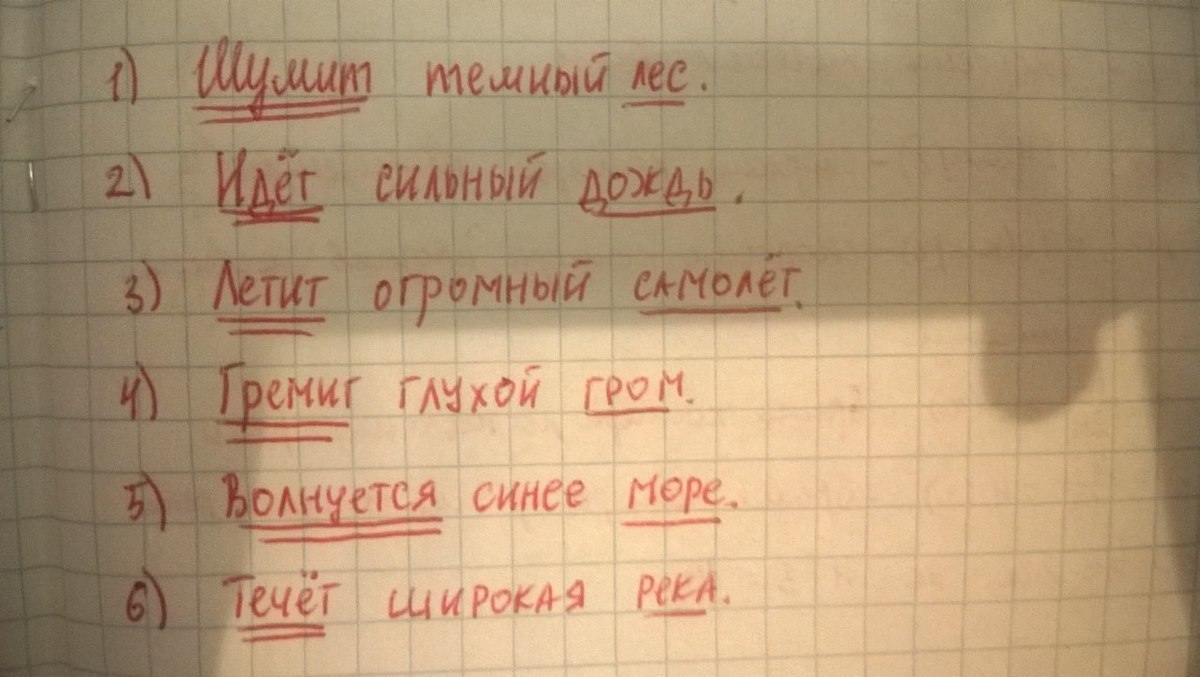 1) Шумит темный лес.
2) Идёт сильный дождь.
3) Летит огромный самолёт.
4) Гремит глухой гром.
5) Волнуется синее море.
6) Течёт широкая река.